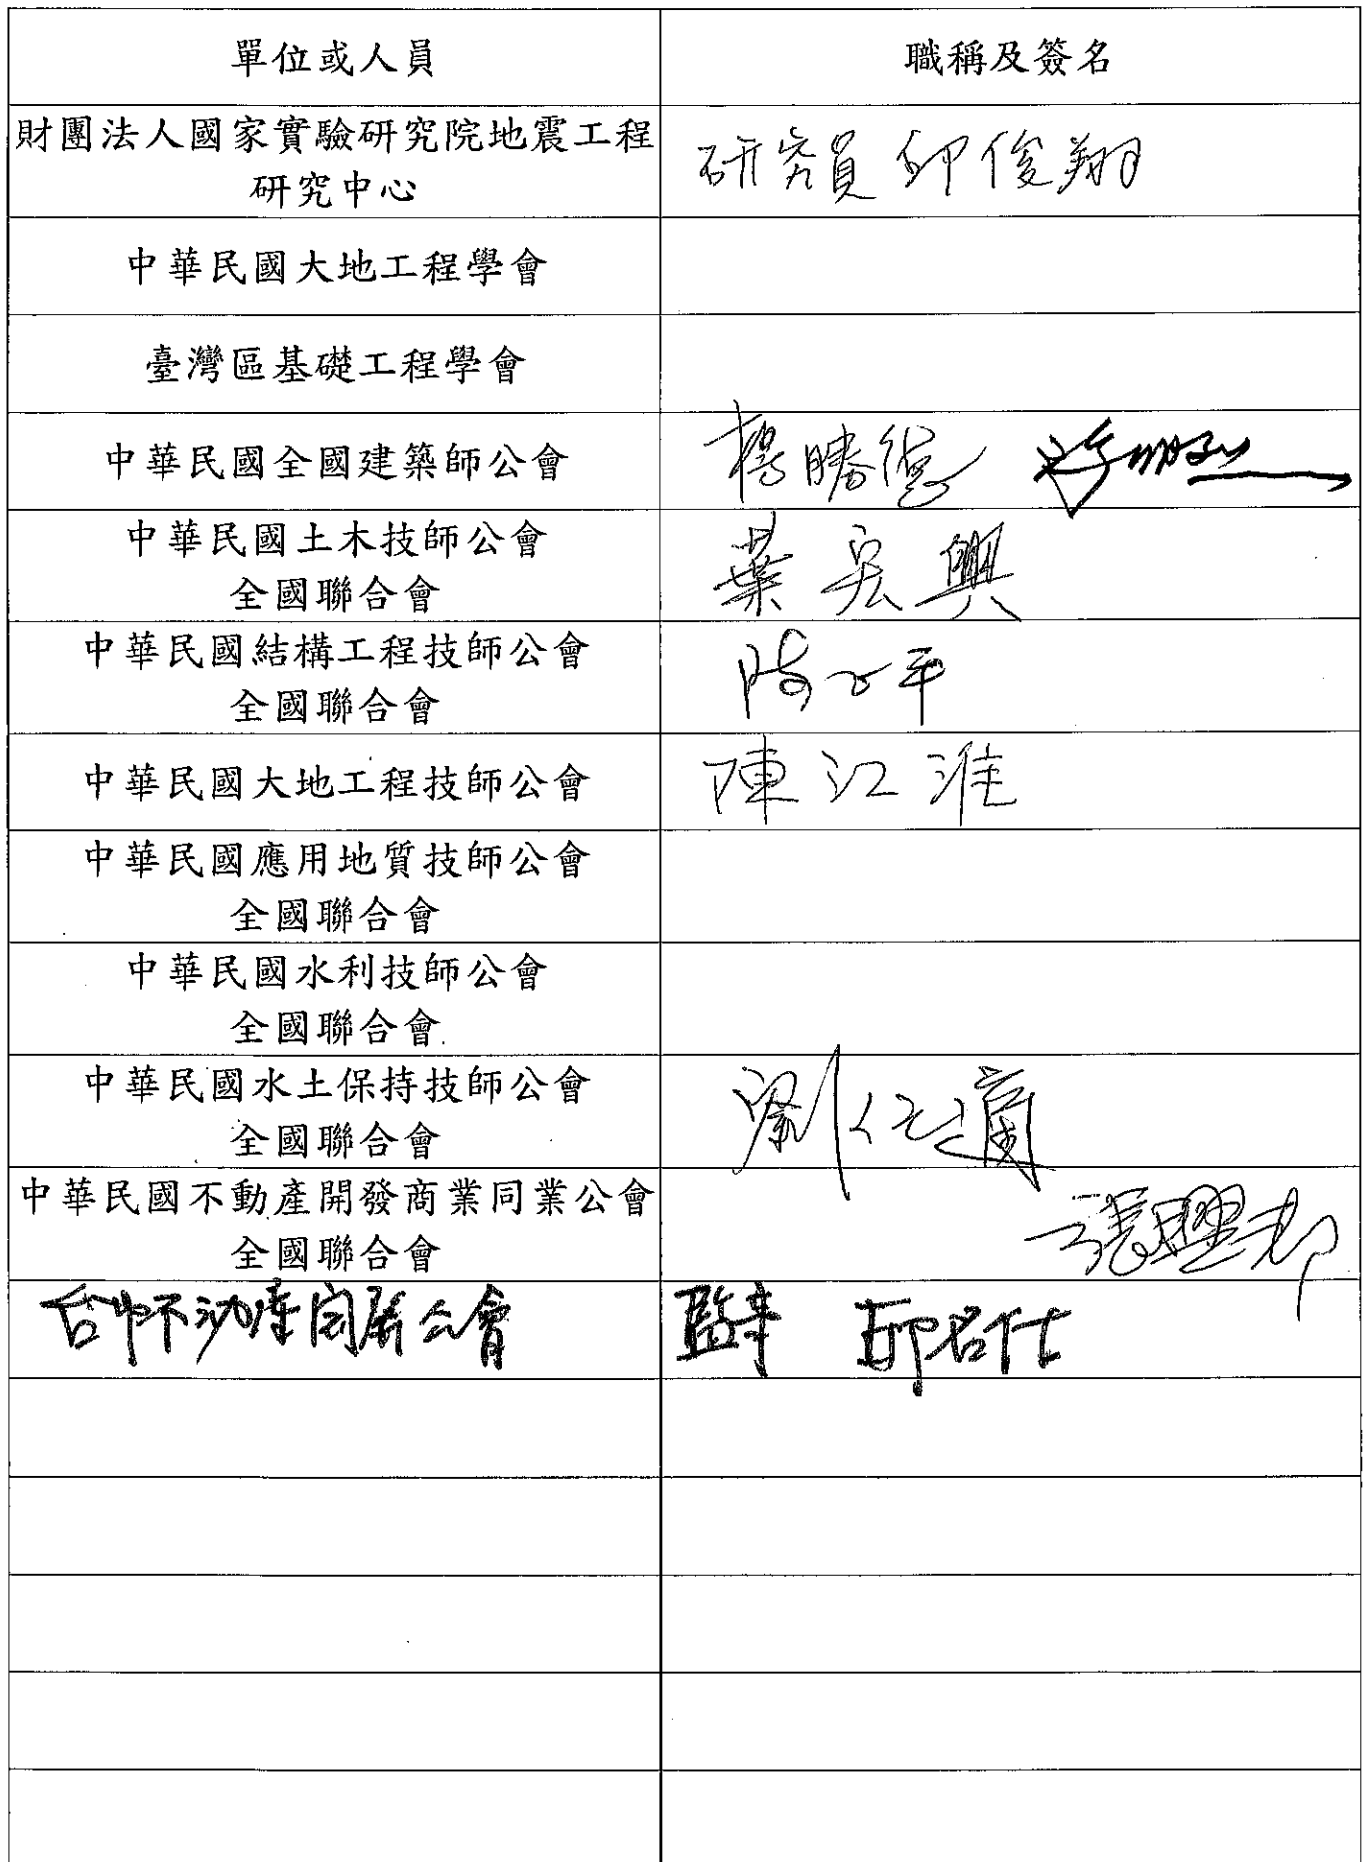 單位或人員
職稱及簽名
財團法人國家實驗研究院地震工程
研究中心
研究員 邱俊翔
中華民國大地工程學會
臺灣區基礎工程學會
中華民國全國建築師公會
楊勝德
中華民國土木技師公會
全國聯合會
葉宏興
中華民國結構工程技師公會
全國聯合會
陳正平
中華民國大地工程技師公會
陳江淮
中華民國應用地質技師公會
全國聯合會
中華民國水利技師公會
全國聯合會
中華民國水土保持技師公會
全國聯合會
劉
中華民國不動產開發商業同業公會
全國聯合會
張興邦
公會
監事